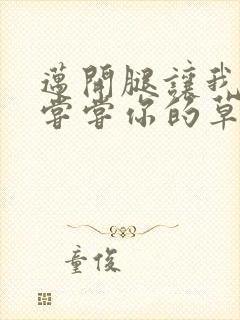 邁開腿讓我
嘗嘗你的草
童俊